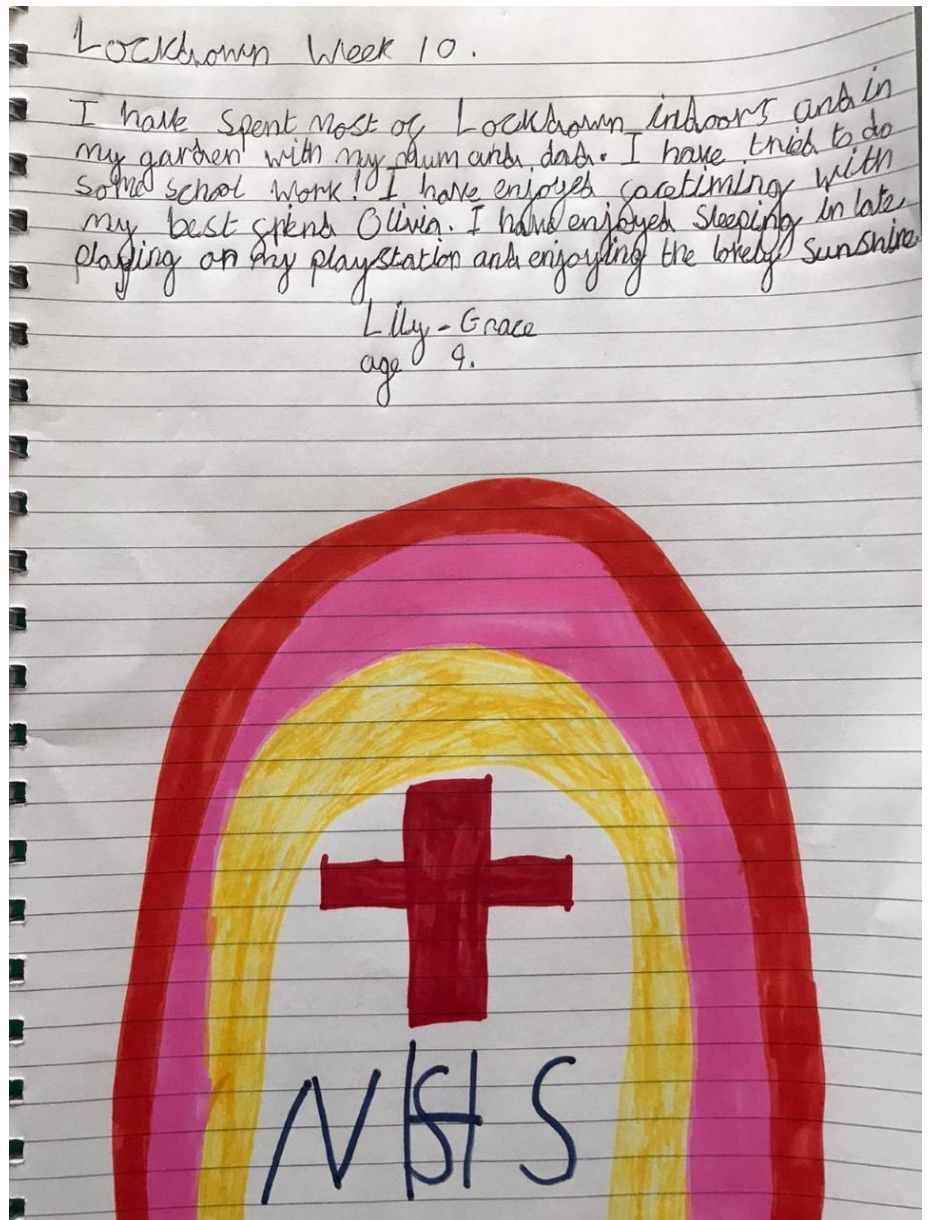 Lockdown Week 10.
I have spent most of Lockdown indoors and in
my garden with my mum and dad. I have tried to do
some school work! I have enjoyed facetiming with
my best friend Olivia. I have enjoyed sleeping in late
playing on my playstation and enjoying the lovely sunshine.
Lily-Grace
age 9.
NHS